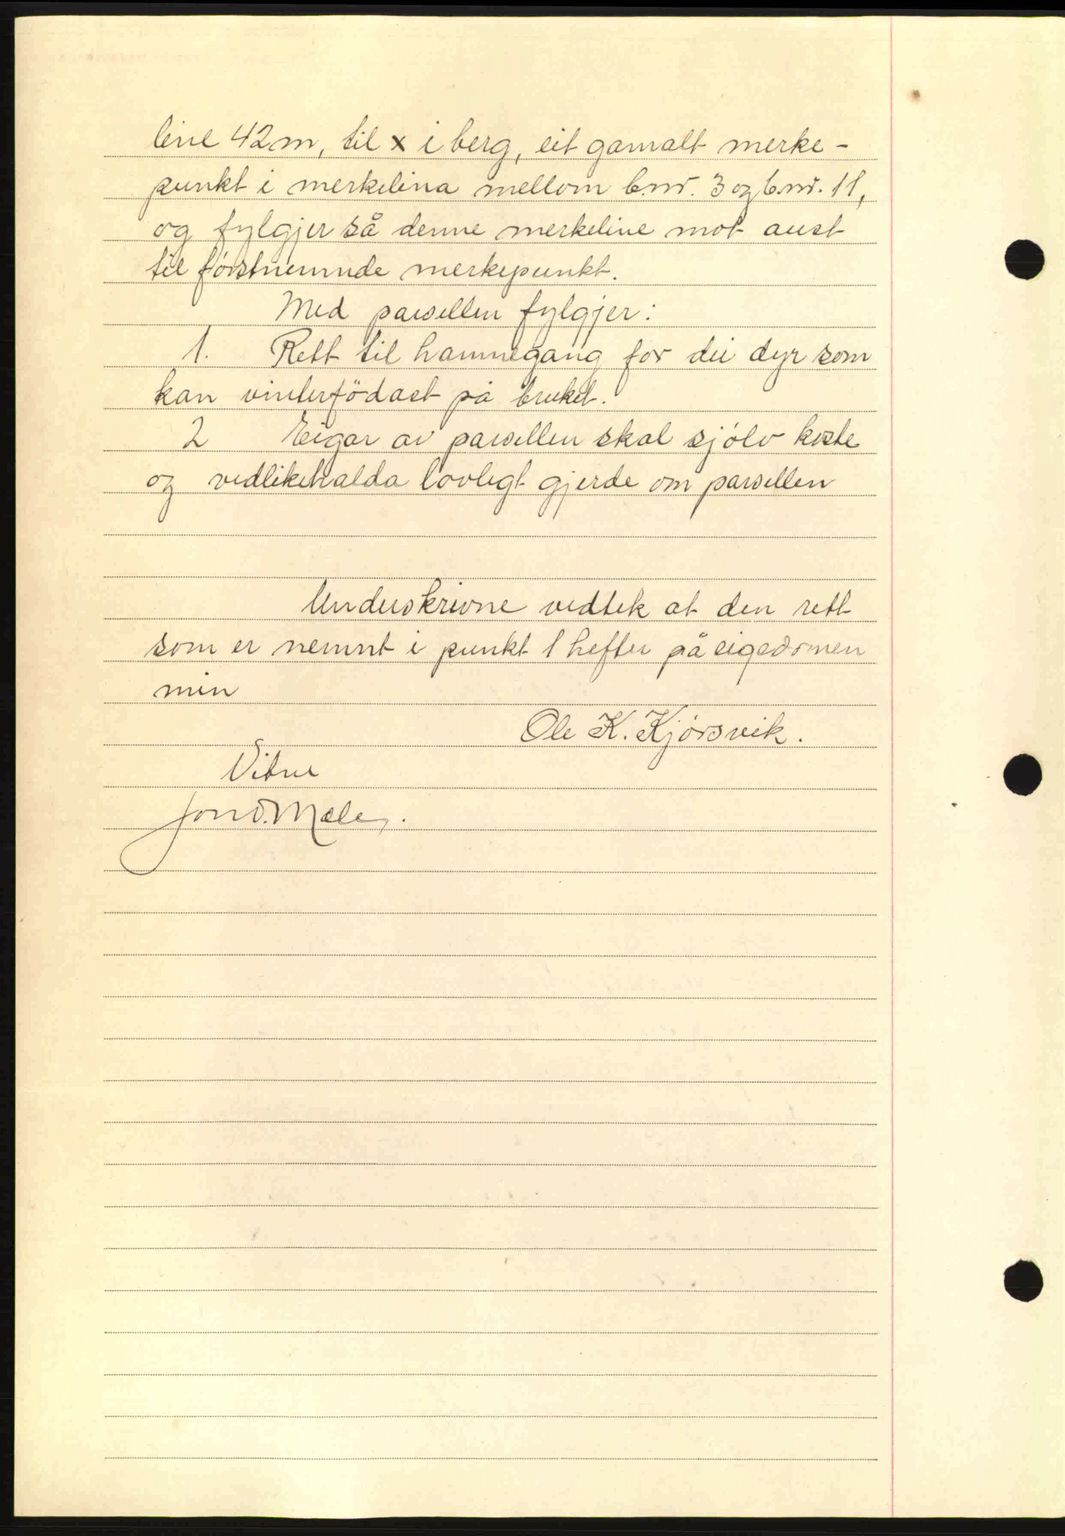 line 42m, til x i berg, eit gamalt merke-
punkt i merkelina mellom b.nr. 3 og b.nr. 11,
og fylgjer så denne merkeline mot aust
til förstnemnde merkepunkt.
Med parsellen fylgjer:
1. Rett til hamnegang for dei dyr som
kan vinterfödast på bruket.
2 Eigar av parsellen skal sjölv koste
og vedlikehalda lovlegt gjerde om parsellen
Underskrivne vedtek at den rett
som er nemnt i punkt 1 hefter på eigedomen
min
Ole K. Kjörsvik.
Vitne
Jon O. Mæle.